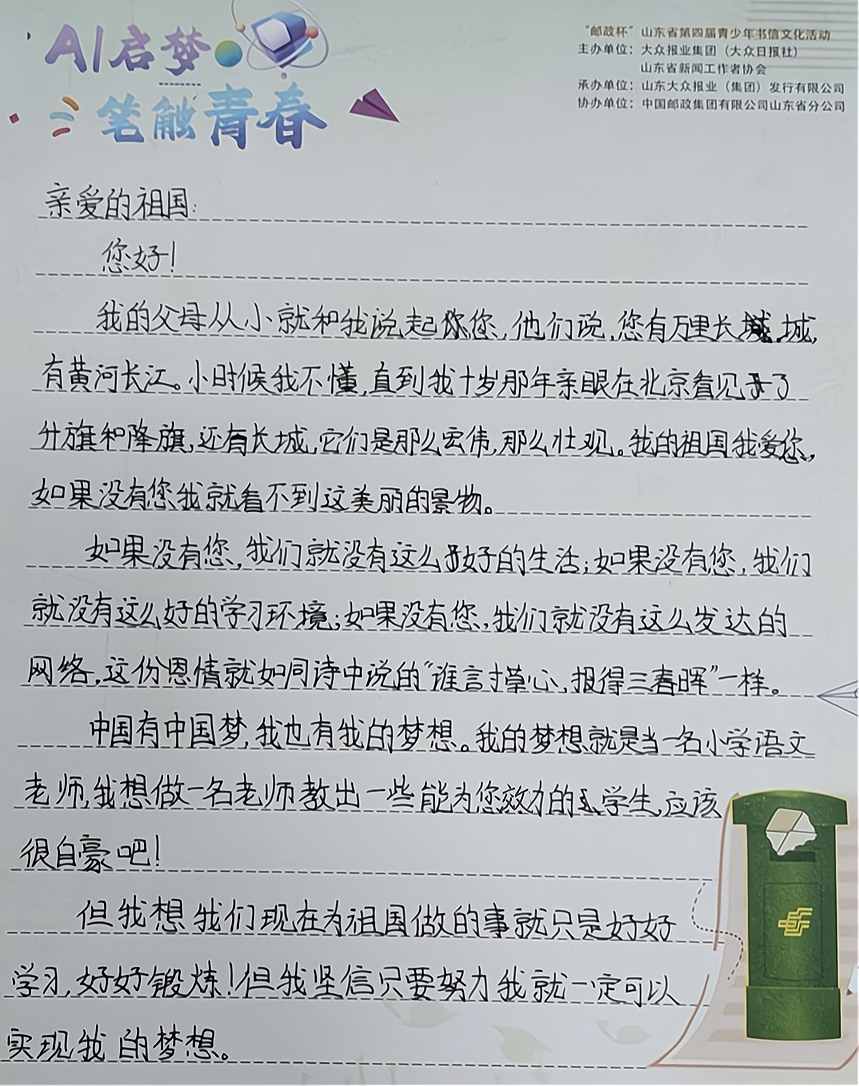 AI启梦
笔触青春
"邮政杯"山东省第四届青少年书信文化活动
主办单位：大众报业集团（大众日报社）
山东省新闻工作者协会
承办单位：山东大众报业（集团）发行有限公司
协办单位：中国邮政集团有限公司山东省分公司
亲爱的祖国：
您好！
我的父母从小就和我说起您，他们说，您有万里长城，
有黄河长江。小时候我不懂，直到我十岁那年亲眼在北京看见了
升旗和降旗，还有长城，它们是那么宏伟，那么壮观。我的祖国我爱您，
如果没有您我就看不到这美丽的景物。
如果没有您，我们就没有这么好的生活；如果没有您，我们
就没有这么好的学习环境；如果没有您，我们就没有这么发达的
网络，这份恩情就如同诗中说的"谁言寸草心，报得三春晖"一样。
中国有中国梦，我也有我的梦想。我的梦想就是当一名小学语文
老师，我想做一名老师教出一些能为您效力的学生，应该
很自豪吧！
但我想我们现在为祖国做的事就只是好好
学习，好好锻炼！但我坚信只要努力我就一定可以
实现我的梦想。